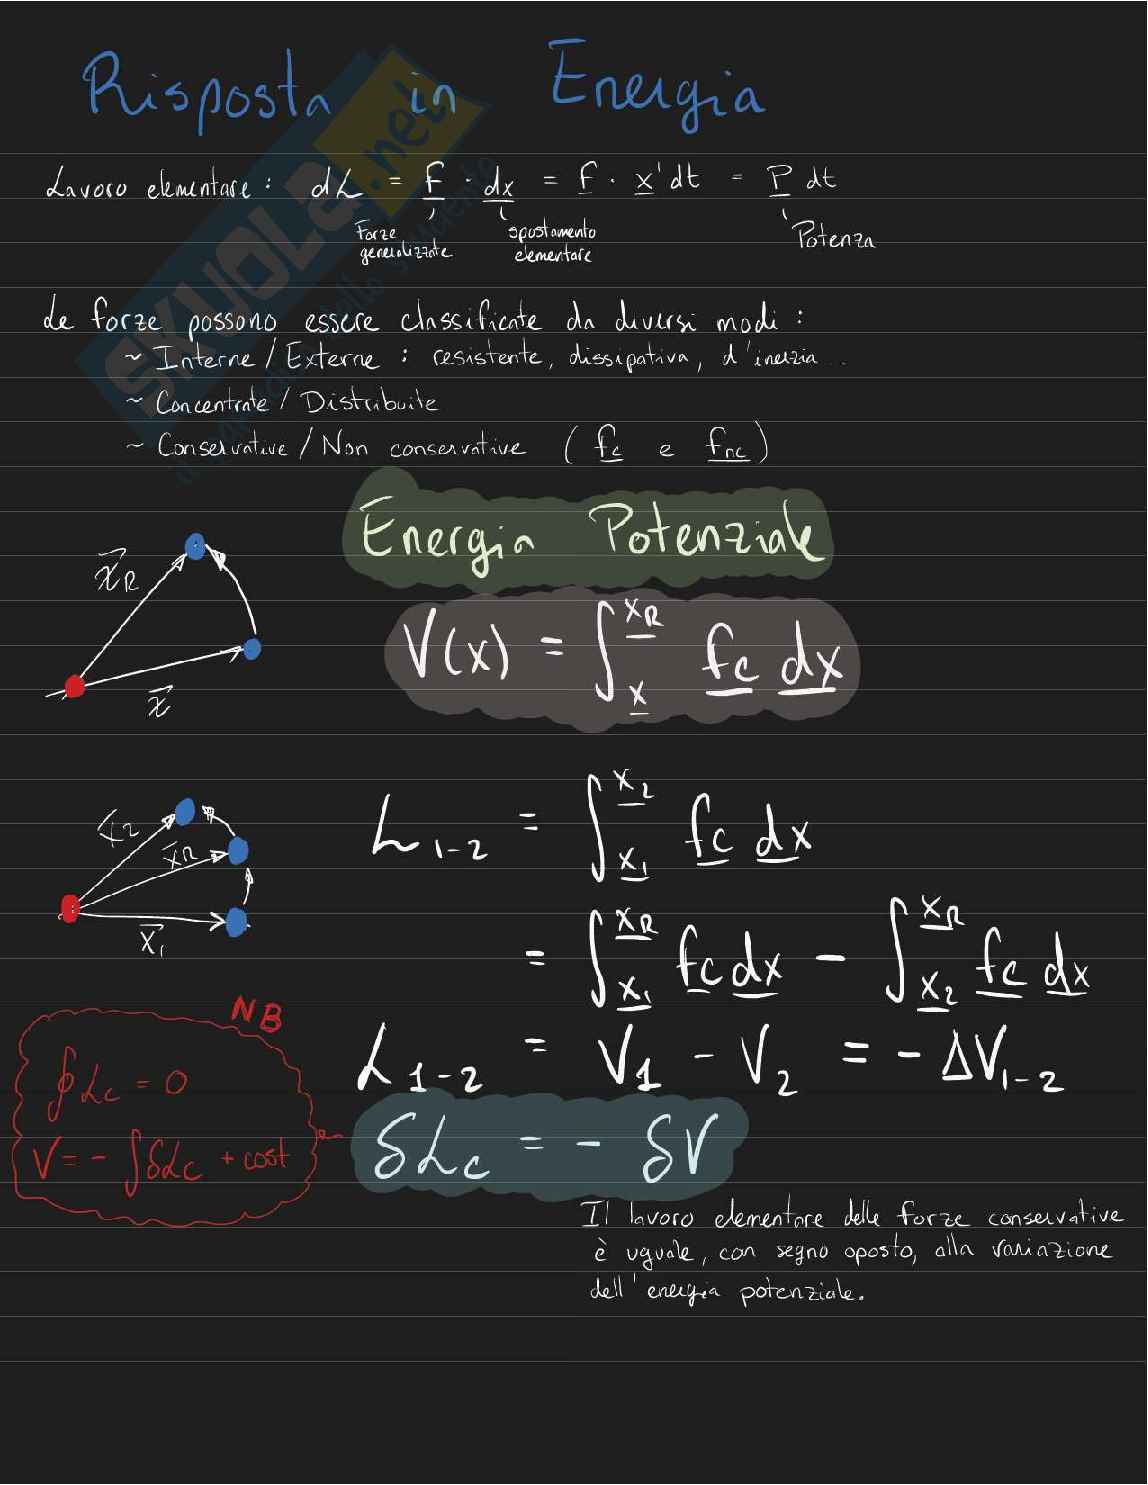 Risposta in Energia
Lavoro elementare: dL = f · dx = f · x' dt = P dt
Forze generalizzate
spostamento elementare
Potenza
Le forze possono essere classificate da diversi modi:
~ Interne / Externe : resistente, dissipativa, d'inerzia...
~ Concentrate / Distribuite
~ Conservative / Non conservative (fc e fnc)
Energia Potenziale
x⃗R
x⃗
V(x) = ∫_x^xR fc dx
x⃗2
x⃗R
x⃗1
L1-2 = ∫_x1^x2 fc dx
= ∫_x1^xR fc dx − ∫_x2^xR fc dx
L1-2 = V1 - V2 = - ΔV1-2
NB
∮ Lc = 0
V = - ∫ δLc + cost
δLc = - δV
Il lavoro elementare delle forze conservative
è uguale, con segno opposto, alla variazione
dell'energia potenziale.
SKUOLA.net